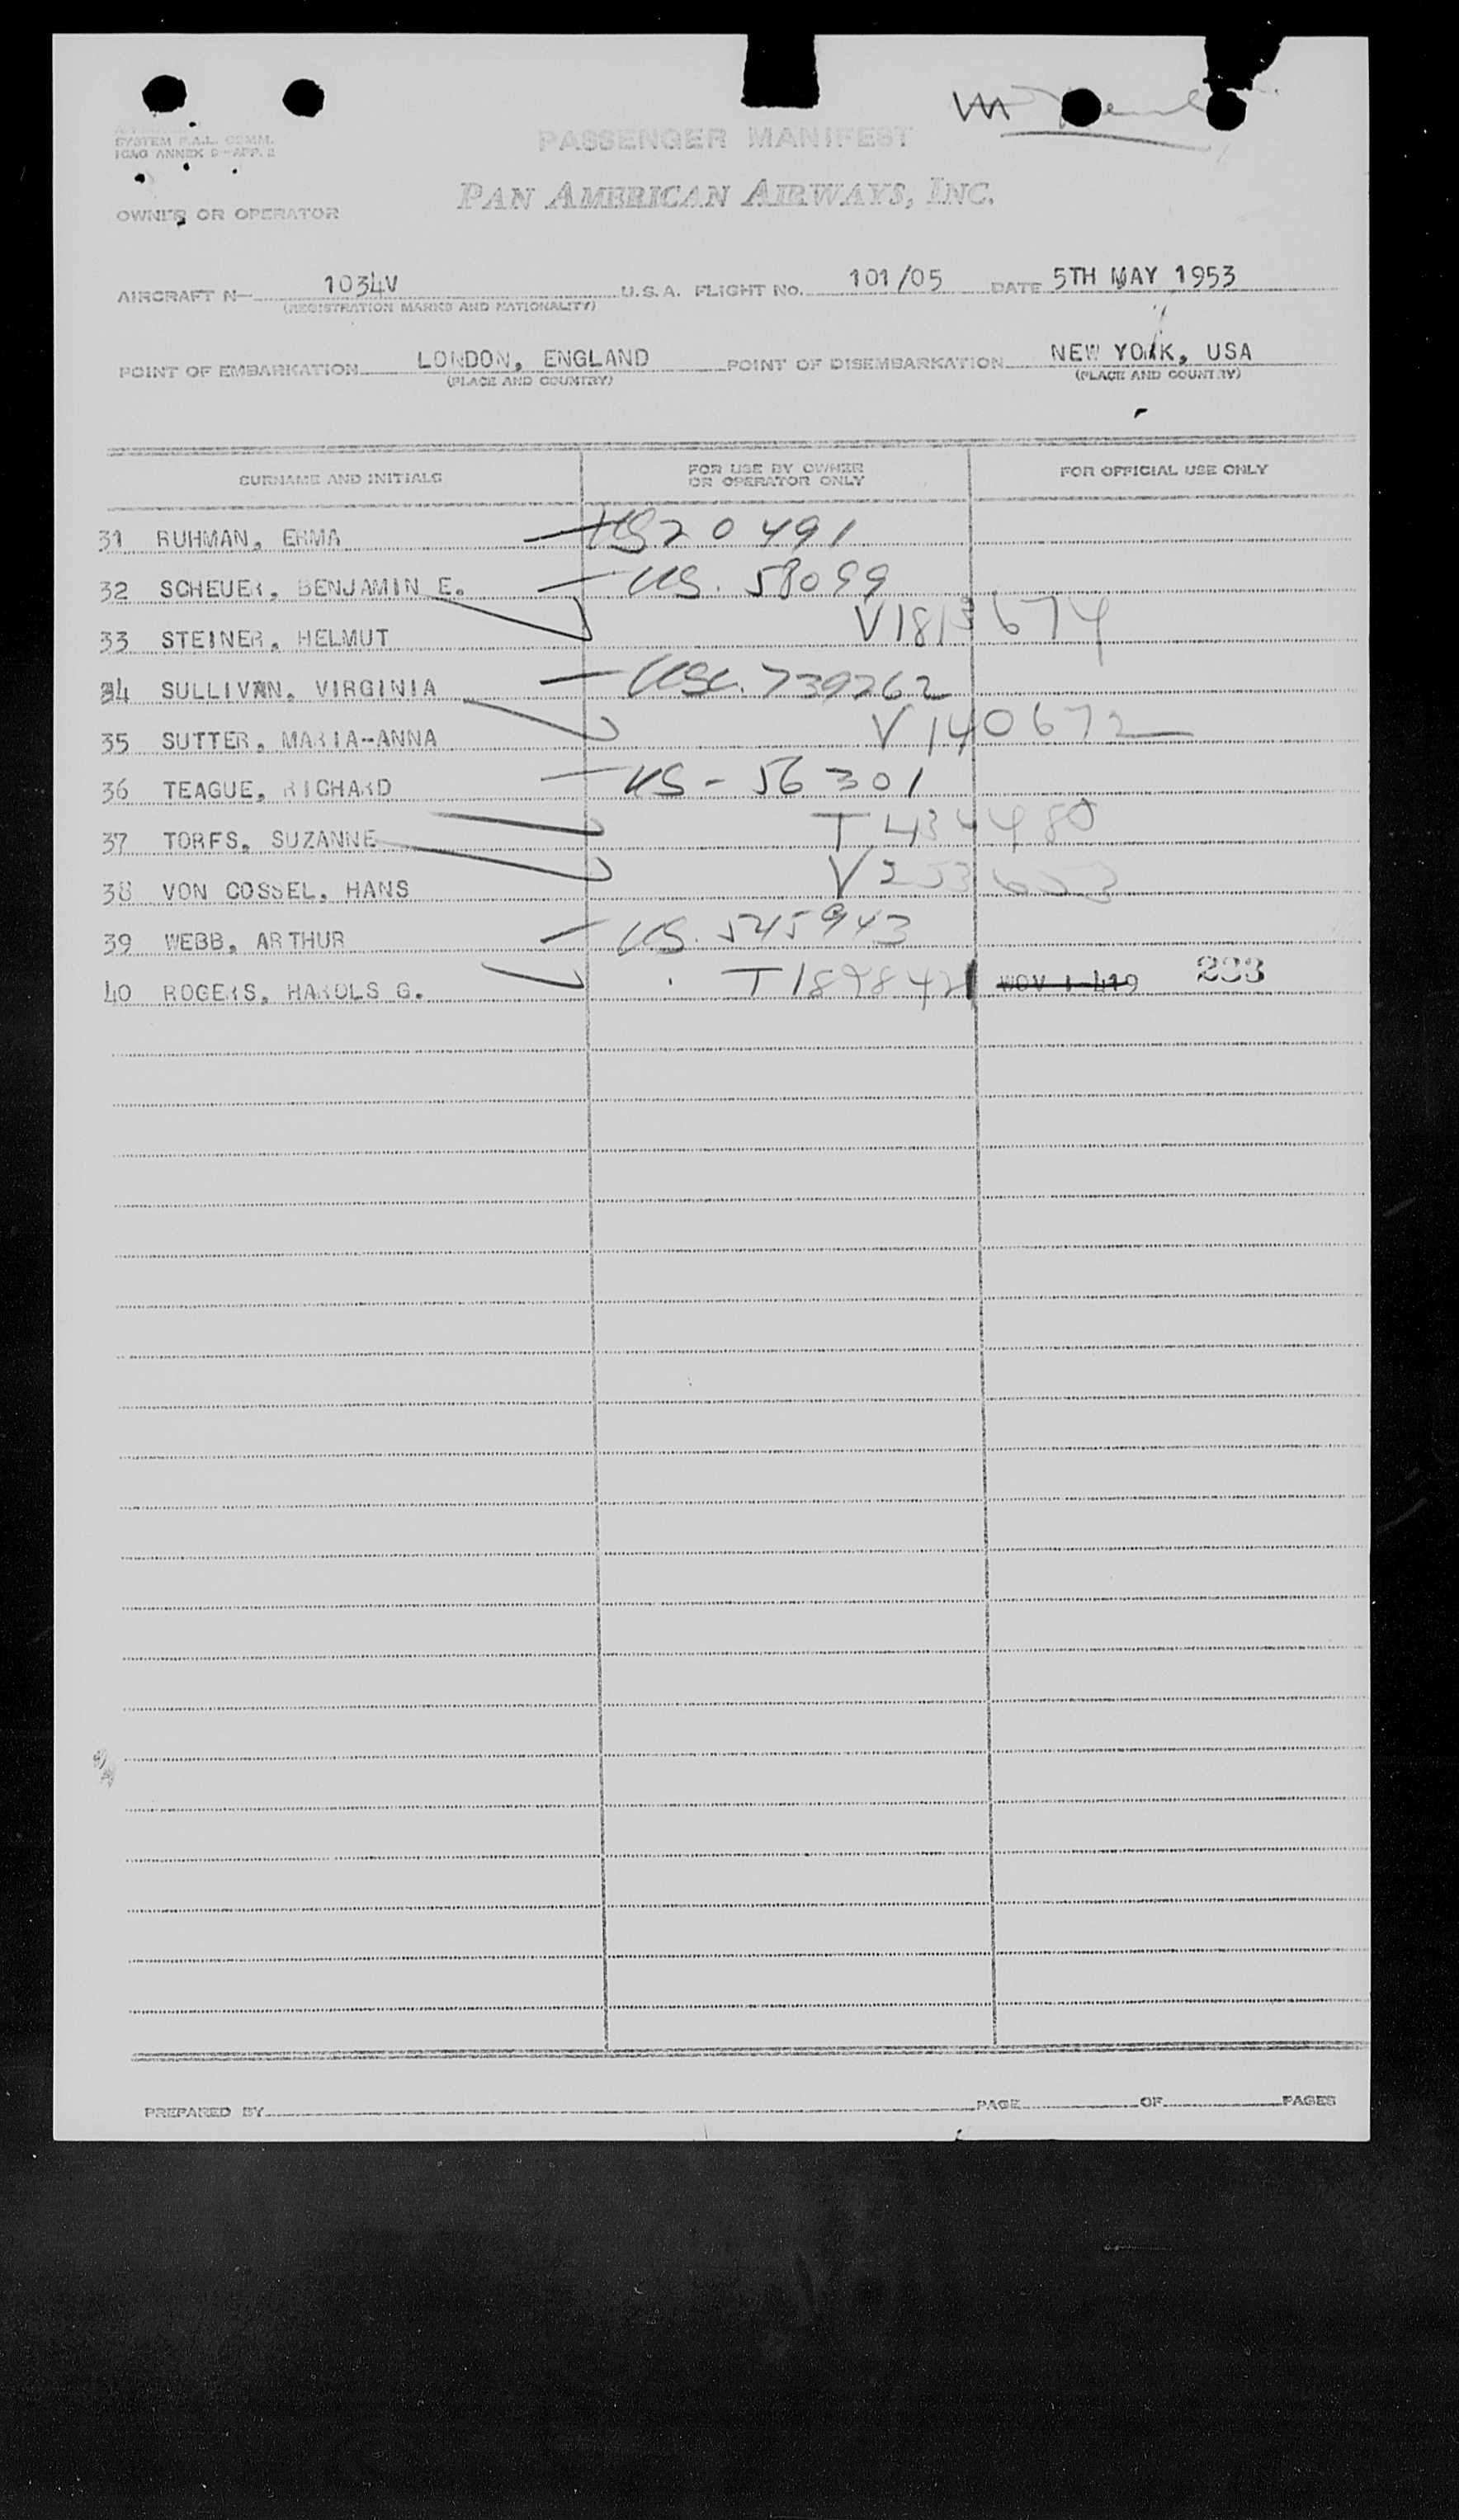 SYSTEM P.A.L. COMM.
ICAO ANNEX 9-APP. 2
PASSENGER MANIFEST
PAN AMERICAN AIRWAYS, INC.
OWNER OR OPERATOR
AIRCRAFT N- 1034V U.S.A. FLIGHT NO. 101/05 DATE 5TH MAY 1953
(REGISTRATION MARKS AND NATIONALITY)
POINT OF EMBARKATION LONDON, ENGLAND POINT OF DISEMBARKATION NEW YORK, USA
(PLACE AND COUNTRY) (PLACE AND COUNTRY)
SURNAME AND INITIALS FOR USE BY OWNER OR OPERATOR ONLY FOR OFFICIAL USE ONLY
31 RUHMAN, ERMA US 20491
32 SCHEUER, BENJAMIN E. US. 58099
33 STEINER, HELMUT V1813674
34 SULLIVAN, VIRGINIA USC. 739262
35 SUTTER, MARIA-ANNA V140672
36 TEAGUE, RICHARD US-56301
37 TORFS, SUZANNE T434480
38 VON COSSEL, HANS
39 WEBB, ARTHUR US. 545943
40 ROGERS, HAROLS G. 233
PREPARED BY PAGE OF PAGES